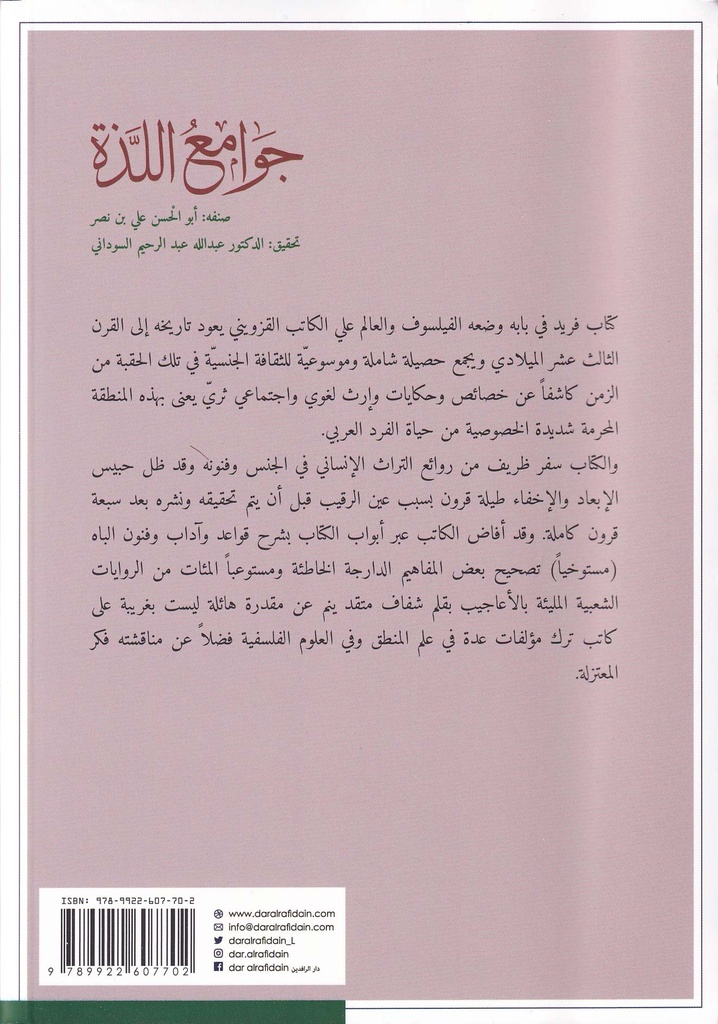 جوامع اللَّذة
صنفه: أبو الحسن علي بن نصر
تحقيق: الدكتور عبدالله عبد الرحيم السوداني
كتاب فريد في بابه وضعه الفيلسوف والعالم علي الكاتب القزويني يعود تاريخه إلى القرن
الثالث عشر الميلادي ويجمع حصيلة شاملة وموسوعيّة للثقافة الجنسيّة في تلك الحقبة من
الزمن كاشفاً عن خصائص وحكايات وإرث لغوي واجتماعي ثريّ يعنى بهذه المنطقة
المحرمة شديدة الخصوصية من حياة الفرد العربي.
والكتاب سفر ظريف من روائع التراث الإنساني في الجنس وفنونه وقد ظل حبيس
الإبعاد والإخفاء طيلة قرون بسبب عين الرقيب قبل أن يتم تحقيقه ونشره بعد سبعة
قرون كاملة. وقد أفاض الكاتب عبر أبواب الكتاب بشرح قواعد وآداب وفنون الباه
(مستوخياً) تصحيح بعض المفاهيم الدارجة الخاطئة ومستوعباً المئات من الروايات
الشعبية المليئة بالأعاجيب بقلم شفاف متقد ينم عن مقدرة هائلة ليست بغريبة على
كاتب ترك مؤلفات عدة في علم المنطق وفي العلوم الفلسفية فضلاً عن مناقشته فكر
المعتزلة.
ISBN: 978-9922-607-70-2
9 789922 607702
www.daralrafidain.com
info@daralrafidain.com
daralrafidain_L
dar.alrafidain
dar alrafidain دار الرافدين